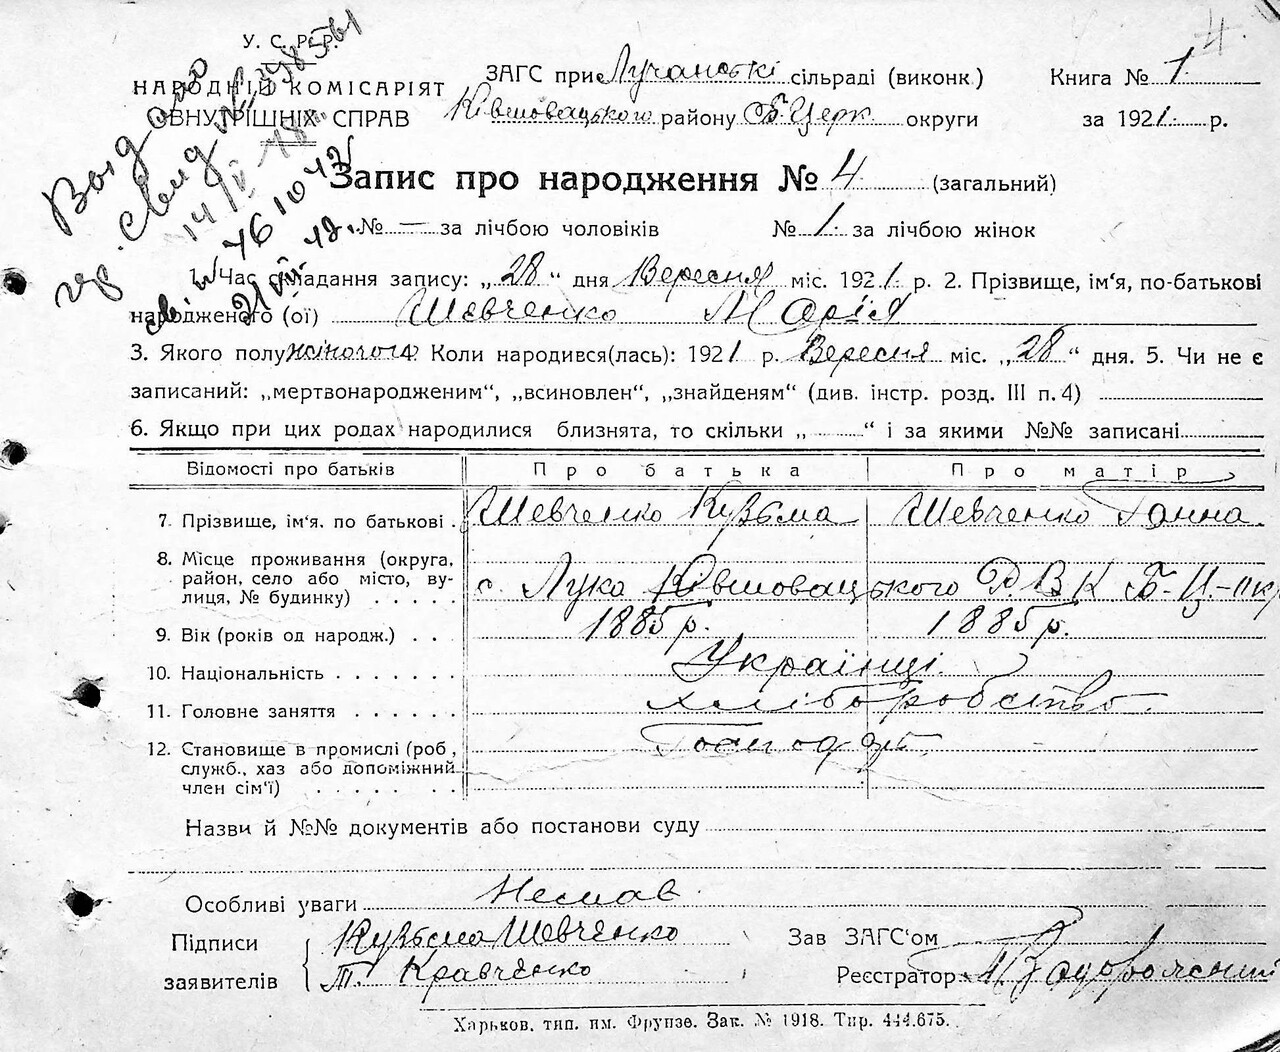 4.
У. С. Р. Р.
НАРОДНІЙ КОМІСАРІЯТ
ВНУТРІШНІХ СПРАВ
ЗАГС при Лучанські сільраді (виконк.)
Ківшовацького району Б. Церк. округи
Книга № 1.
за 1921. р.
Выдано
Свид
Запис про народження № 4 (загальний)
№ — за лічбою чоловіків № 1. за лічбою жінок
1. Час складання запису: „28“ дня Вересня міс. 1921 р. 2. Прізвище, ім‘я, по-батькові
народженого (ої) Шевченко Марія
3. Якого полу жіночого 4. Коли народився(лась): 1921 р. Вересня міс. „28“ дня. 5. Чи не є
записаний: „мертвонародженим“, „всиновлен“, „знайденям“ (див. інстр. розд. III п. 4)
6. Якщо при цих родах народилися близнята, то скільки „ “ і за якими №№ записані
Відомості про батьків Про батька Про матір
7. Прізвище, ім‘я. по батькові Шевченко Кузьма Шевченко Ганна
8. Місце проживання (округа,
район, село або місто, ву-
лиця, № будинку) с. Лука Ківшовацького Р. В. К Б-Ц.-
9. Вік (років од народж.) 1885 р. 1885 р.
10. Національність Українці
11. Головне заняття хліборобство.
12. Становище в промислі (роб,
служб., хаз або допоміжний
член сім‘ї)
Назви й №№ документів або постанови суду
Особливі уваги Немає
Підписи Кузьма Шевченко Зав ЗАГС‘ом
заявителів Т. Кравченко Реєстратор
Харьков, тип. им. Фрунзе. Зак. № 1918. Тир. 444.675.